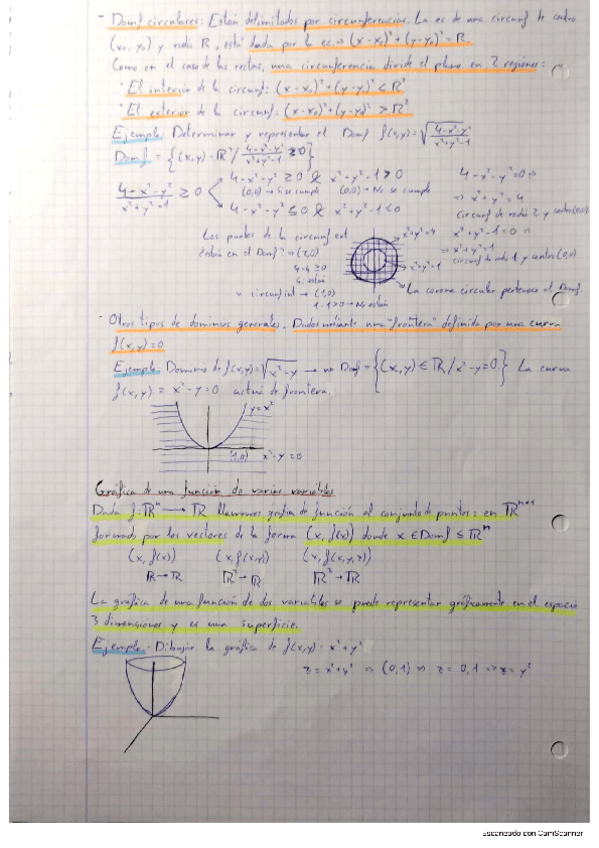 - Domf circulares: Están delimitados por circunferencias. La ec de una circunf de centro
(x₀, y₀) y radio R, está dada por la ec ⇒ (x-x₀)²+(y-y₀)²=R.
Como en el caso de las rectas, una circunferencia divide el plano en 2 regiones:
· El interior de la circunf: (x-x₀)²+(y-y₀)²<R²
· El exterior de la circunf: (x-x₀)²+(y-y₀)²>R²
Ejemplo. Determinar y representar el Domf f(x,y)=√(4-x²-y²/x²+y²-1)
Domf = {(x,y)·R²/ 4-x²-y²/x²+y²-1 ≥0}
4-x²-y²/x²+y²-1 ≥ 0
4-x²-y² ≥ 0 & x²+y²-1>0
(0,0) → Si se cumple (0,0) → No se cumple
4-x²-y² ≤ 0 & x²+y²-1<0
4-x²-y²=0 ⇒
⇒ x²+y²=4
circunf de radio 2 y centro (0,0)
x²+y²-1=0 ⇒
⇒ x²+y²=1
circunf de radio 1 y centro (0,0)
Los puntos de la circunf ext
están en el Domf? ⇒ (2,0)
4-4 ≥0
Si están
= circunf int → (1,0)
1-1>0 → No están
x²+y²=4
x²+y²=1
La corona circular pertenece al Domf.
- Otros tipos de dominios generales. Dados mediante una "frontera" definida por una curva
f(x,y)=0
Ejemplo. Dominio de f(x,y)=√x²-y → Domf={(x,y)∈R/x²-y=0} La curva
f(x,y) = x²-y=0 actúa de frontera.
y=x²
(1,0) x²-y=0
Gráfica de una función de varias variables
Dada f:Rⁿ → R llamamos gráfica de función al conjunto de puntos: en Rⁿ⁺¹
formado por los vectores de la forma (x, f(x)) donde x ∈ Domf ≤ Rⁿ
(x, f(x)) (x, f(x,y)) (x, f(x,y,z))
R→R R²→R R³→R
La gráfica de una función de dos variables se puede representar gráficamente en el espacio
3 dimensiones y es una superficie.
Ejemplo. Dibujar la gráfica de f(x,y)=x²+y²
z=x²+y² ⇒ (0,1) ⇒ z=0,1 ⇒ z=y²
Escaneado con CamScanner